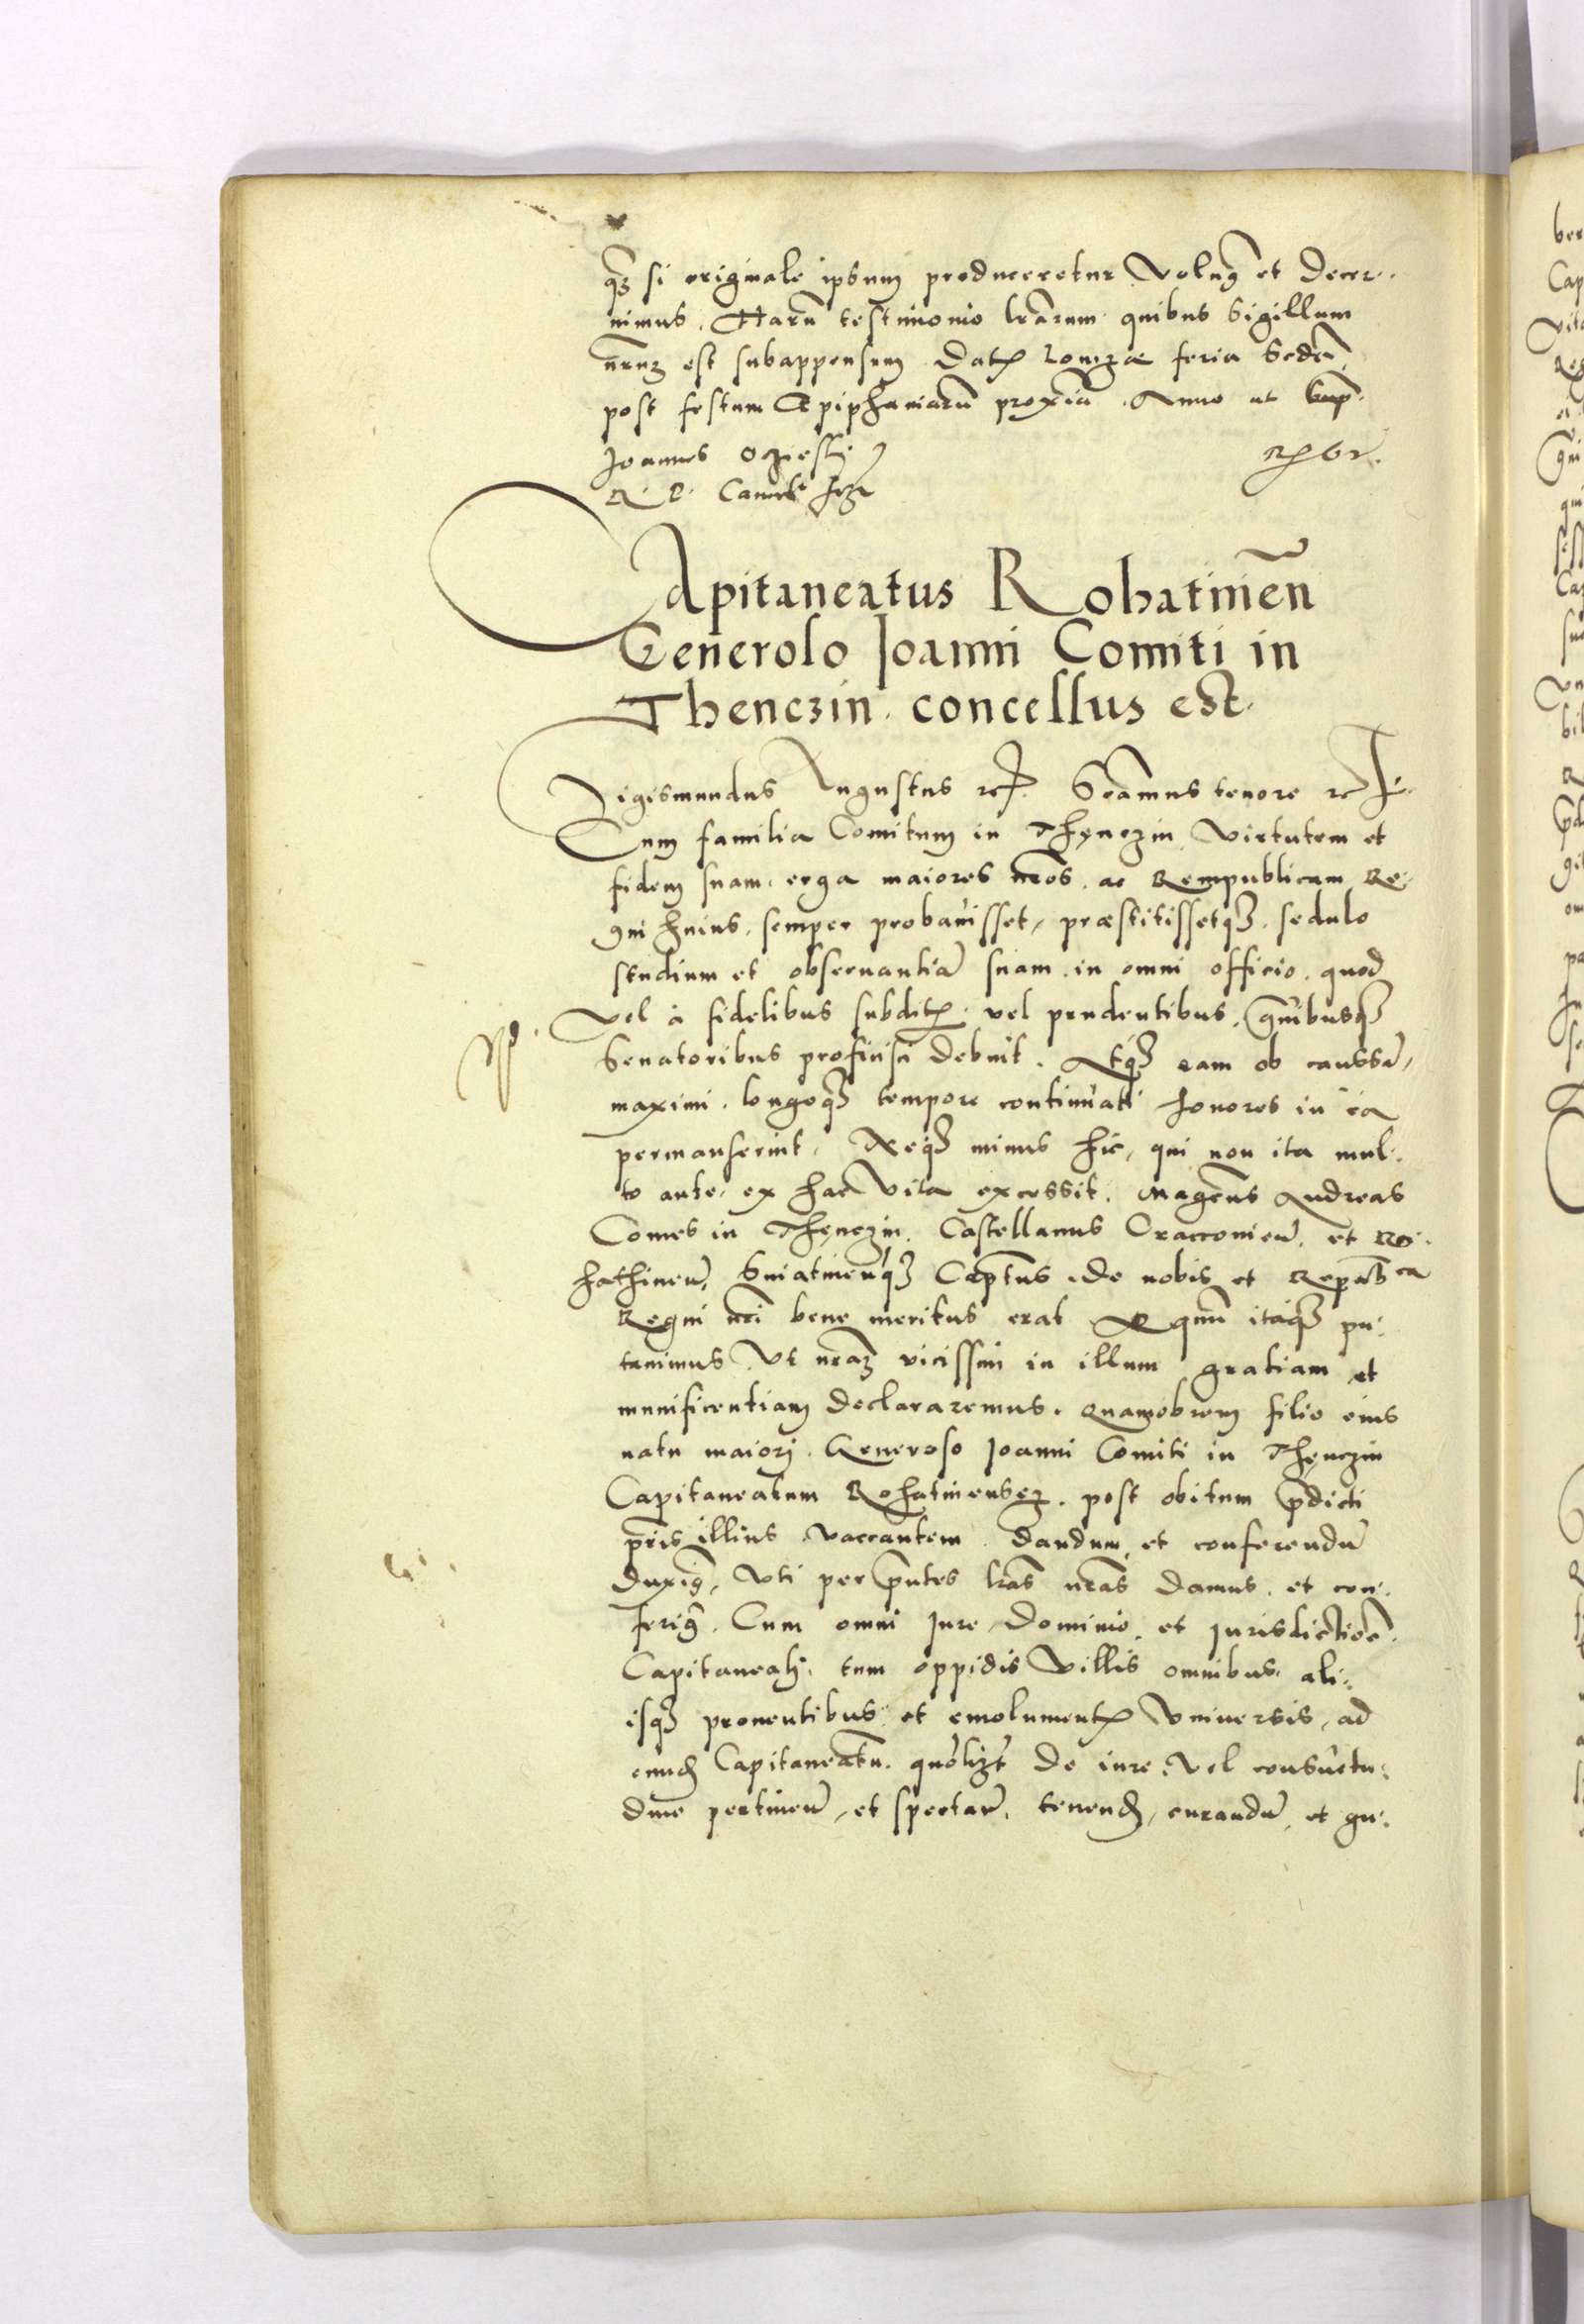 qʒ si originale ipsum produceretur Volumꝰ et decer-
nimus. Harū testimonio lrārum quibus Sigillum
nrūm est subappensum Datꝭ Lomzæ feria Scdā
post festum Epiphaniarū proximā. Anno ut supᷓ.
Joannes Oczieski
R. P. Canclꝰ
Capitaneatus Rohatineñ
Generoso Joanni Comiti in
Thenczin concessus est.
Sigismundus Augustus etc. Significamus tenore etc.
Cum familia Comitum in Thęnczin Virtutem et
fidem suam erga maiores nrōs ac Rempublicam Re-
gni huius, semper probauisset, præstitissetqȝ sedulo
studium et obseruantiā suam in omni officio quod
Vel à fidelibus subditꝭ vel prudentibus, grauibusqȝ
Senatoribus proficisci debuit. Atqȝ eam ob caussā,
maximi longoqȝ tempore continuati honores in ea
permanserint, Neqȝ minus hic, qui non ita mul-
to ante ex hac Vita excessit, Magcūs Andreas
Comes in Thęnczin, Castellanus Cracconieñ. et Ro-
hathineñ, Sniatineñqȝ Captūs de nobis et Repub ca
Regni nrī bene meritus erat Æquū itaqȝ pu-
tauimus Vt nrām vicissim in illum gratiam et
munificentiam declararemus. Quamobrem filio eius
natu maiori Generoso Joanni Comiti in Thęnczin
Capitaneatum Rohatinensem post obitum p̄dicti
pr̄is illius vaccantem dandum et conferendū
duximꝰ, Vti per p̄ntes lrās nrās damus et con-
ferimꝰ. Cum omni Jure Dominio et Jurisdictione
Capitaneali, tum oppidis Villis omnibus ali-
isqȝ prouentibus et emolumentꝭ Vniuersis, ad
eundē Capitaneatū quolizt de iure Vel consuetu-
dine pertineñ et spectañ, tenendū, curandū et gu-